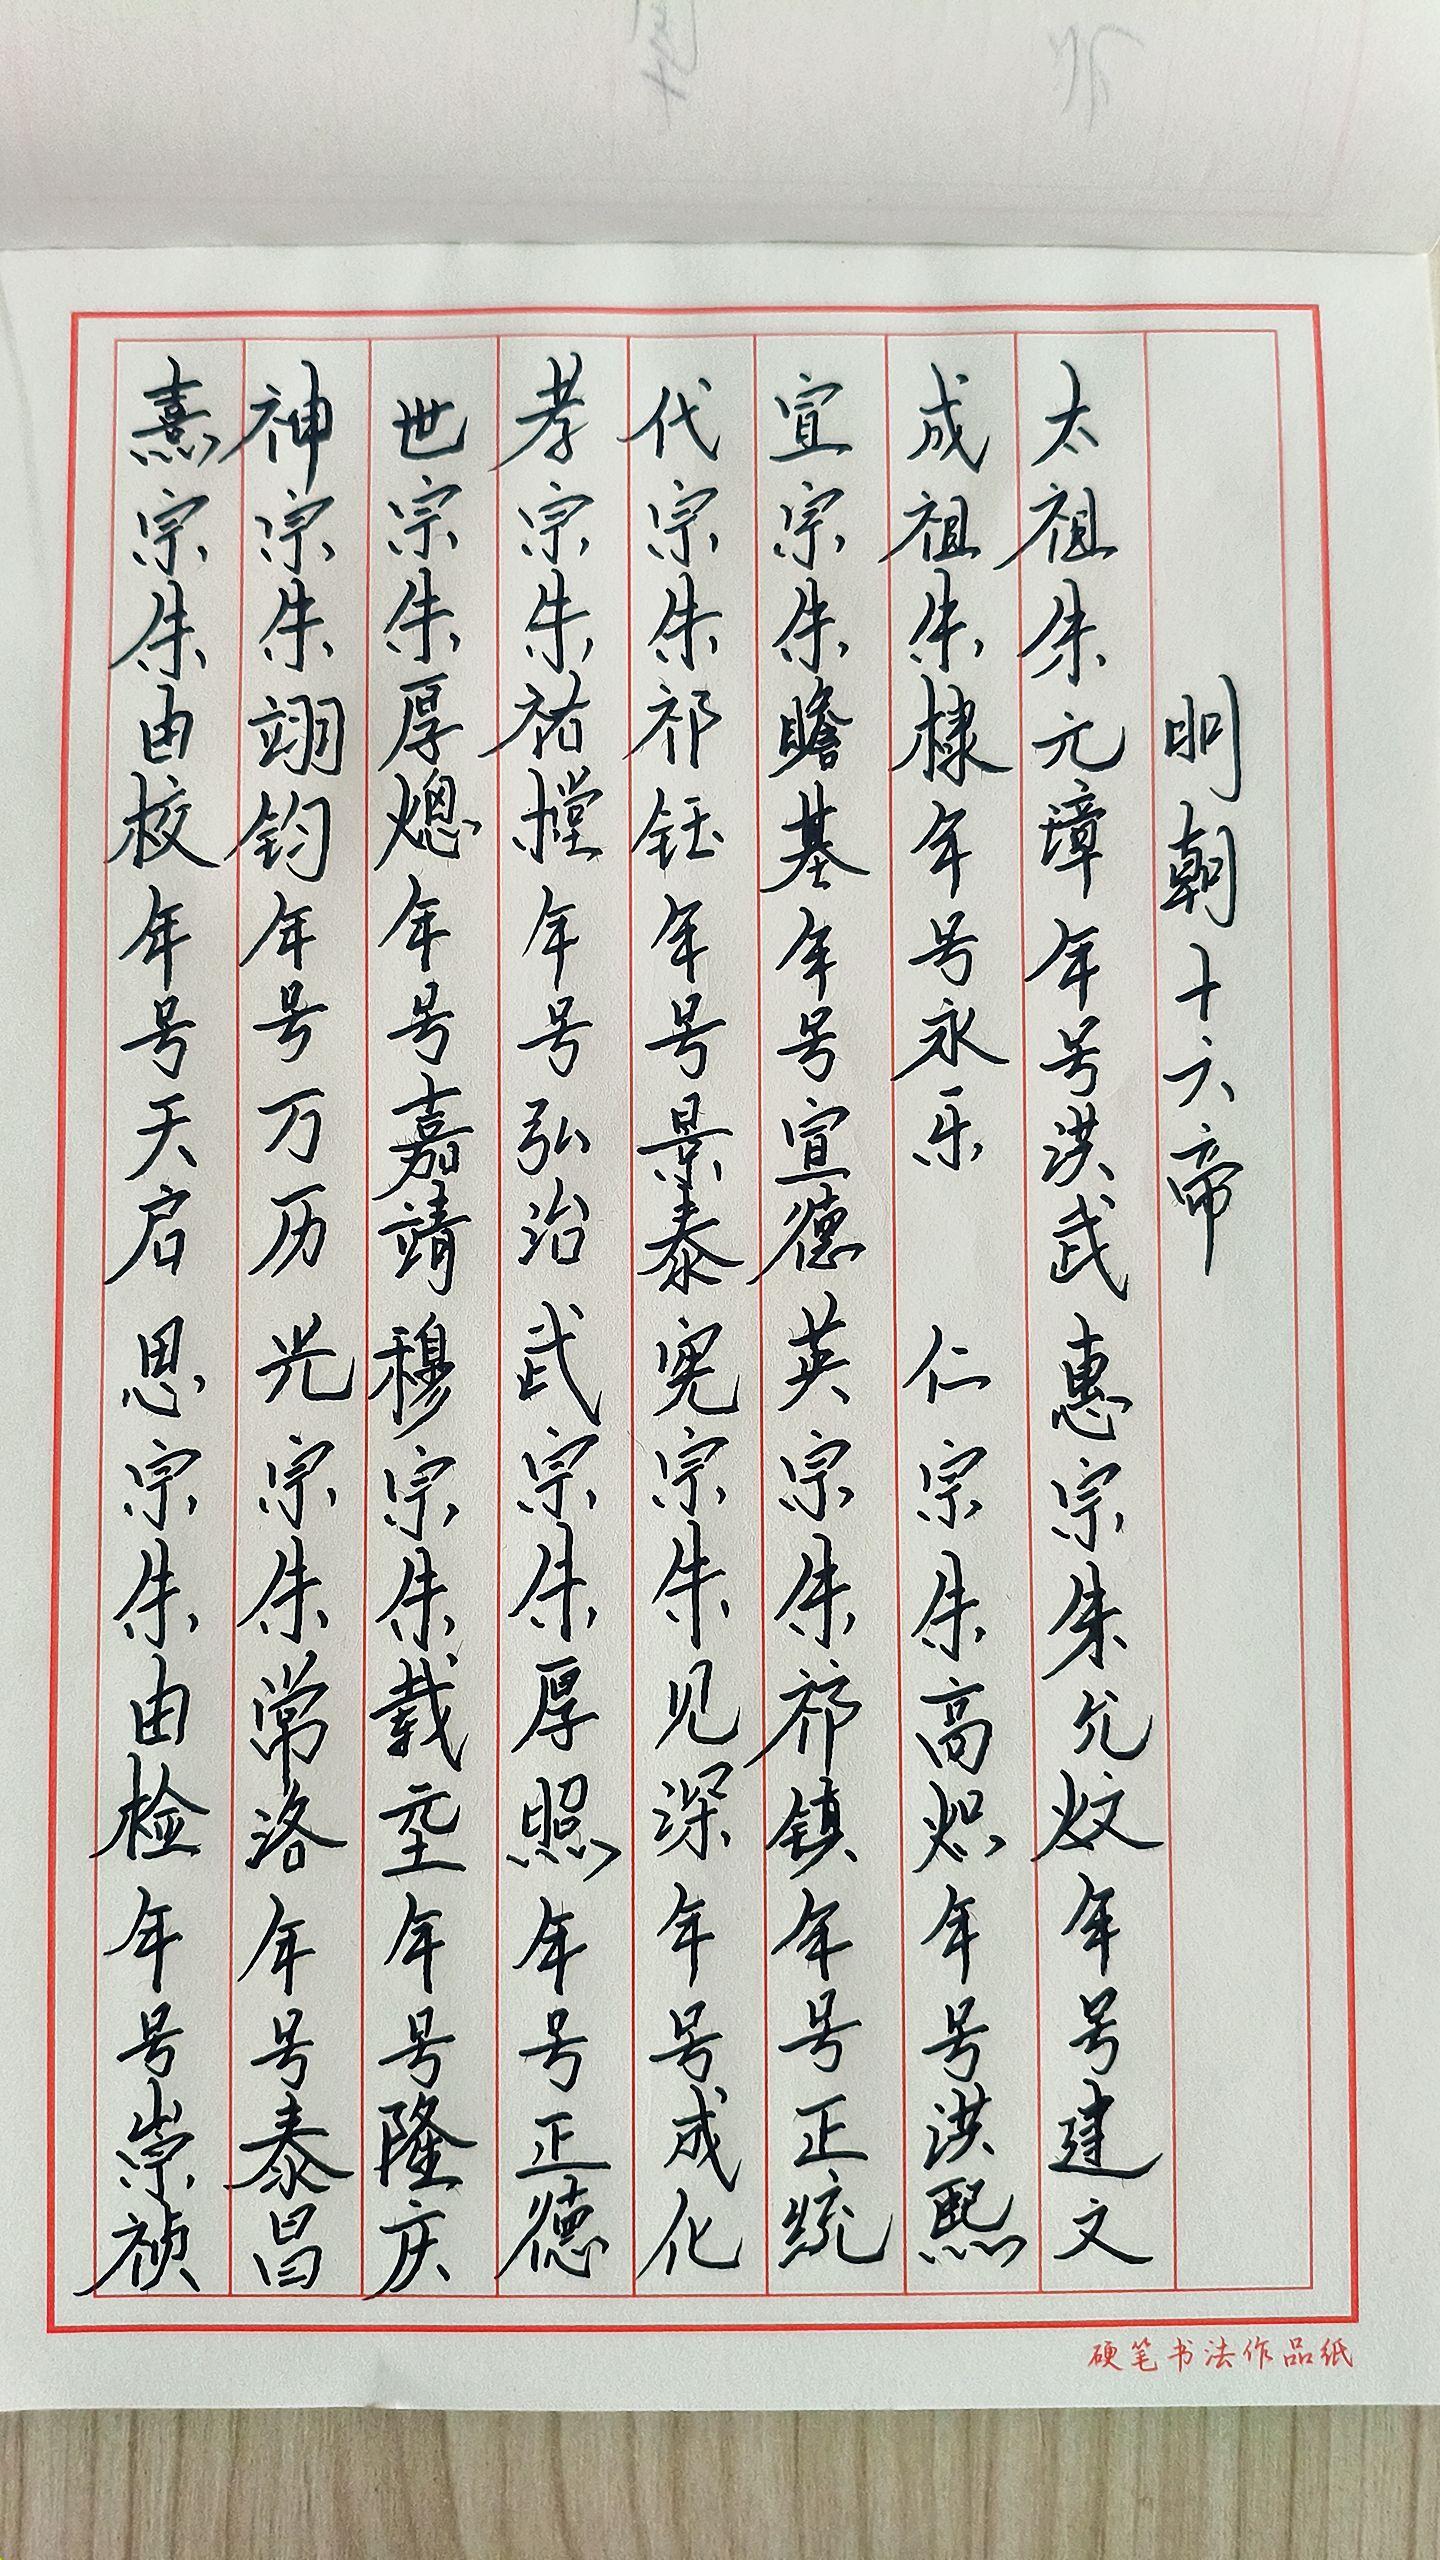 明朝十六帝
太祖朱元璋年号洪武 惠宗朱允炆年号建文
成祖朱棣年号永乐 仁宗朱高炽年号洪熙
宣宗朱瞻基年号宣德 英宗朱祁镇年号正统
代宗朱祁钰年号景泰 宪宗朱见深年号成化
孝宗朱祐樘年号弘治 武宗朱厚照年号正德
世宗朱厚熜年号嘉靖 穆宗朱载坖年号隆庆
神宗朱翊钧年号万历 光宗朱常洛年号泰昌
熹宗朱由校年号天启 思宗朱由检年号崇祯
硬笔书法作品纸